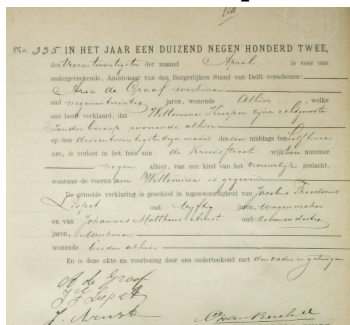 No. 335 IN HET JAAR EEN DUIZEND NEGEN HONDERD TWEE,
den Vierentwintigsten der maand April is voor ons
ondergeteekende, Ambtenaar van den Burgerlijken Stand van Delft verschenen:
Arie de Graaf werkman
oud negenentwintig jaren, wonende Alhier, welke
ons heeft verklaard, dat Willemina Kuiper zijne echtgenoote
zonder beroep wonende alhier
op den drieentwintigsten dezer maand des middags ten
ure, is verloten in het huis aan de Kruisstraat wijk nummer
negen alhier, van een kind van het vrouwelijk geslacht,
waaraan de voornaam Willemina is gegeven
De gemelde verklaring is geschied in tegenwoordigheid van Jacobus Theodorus
Lispet oud vijftig jaren, wagenmaker
en van Johannes Mattheus oud
jaren, werkman
wonende beiden alhier
En is deze akte na voorlezing door ons onderteekend met den vader en getuigen
A de Graaf
J T Lispet